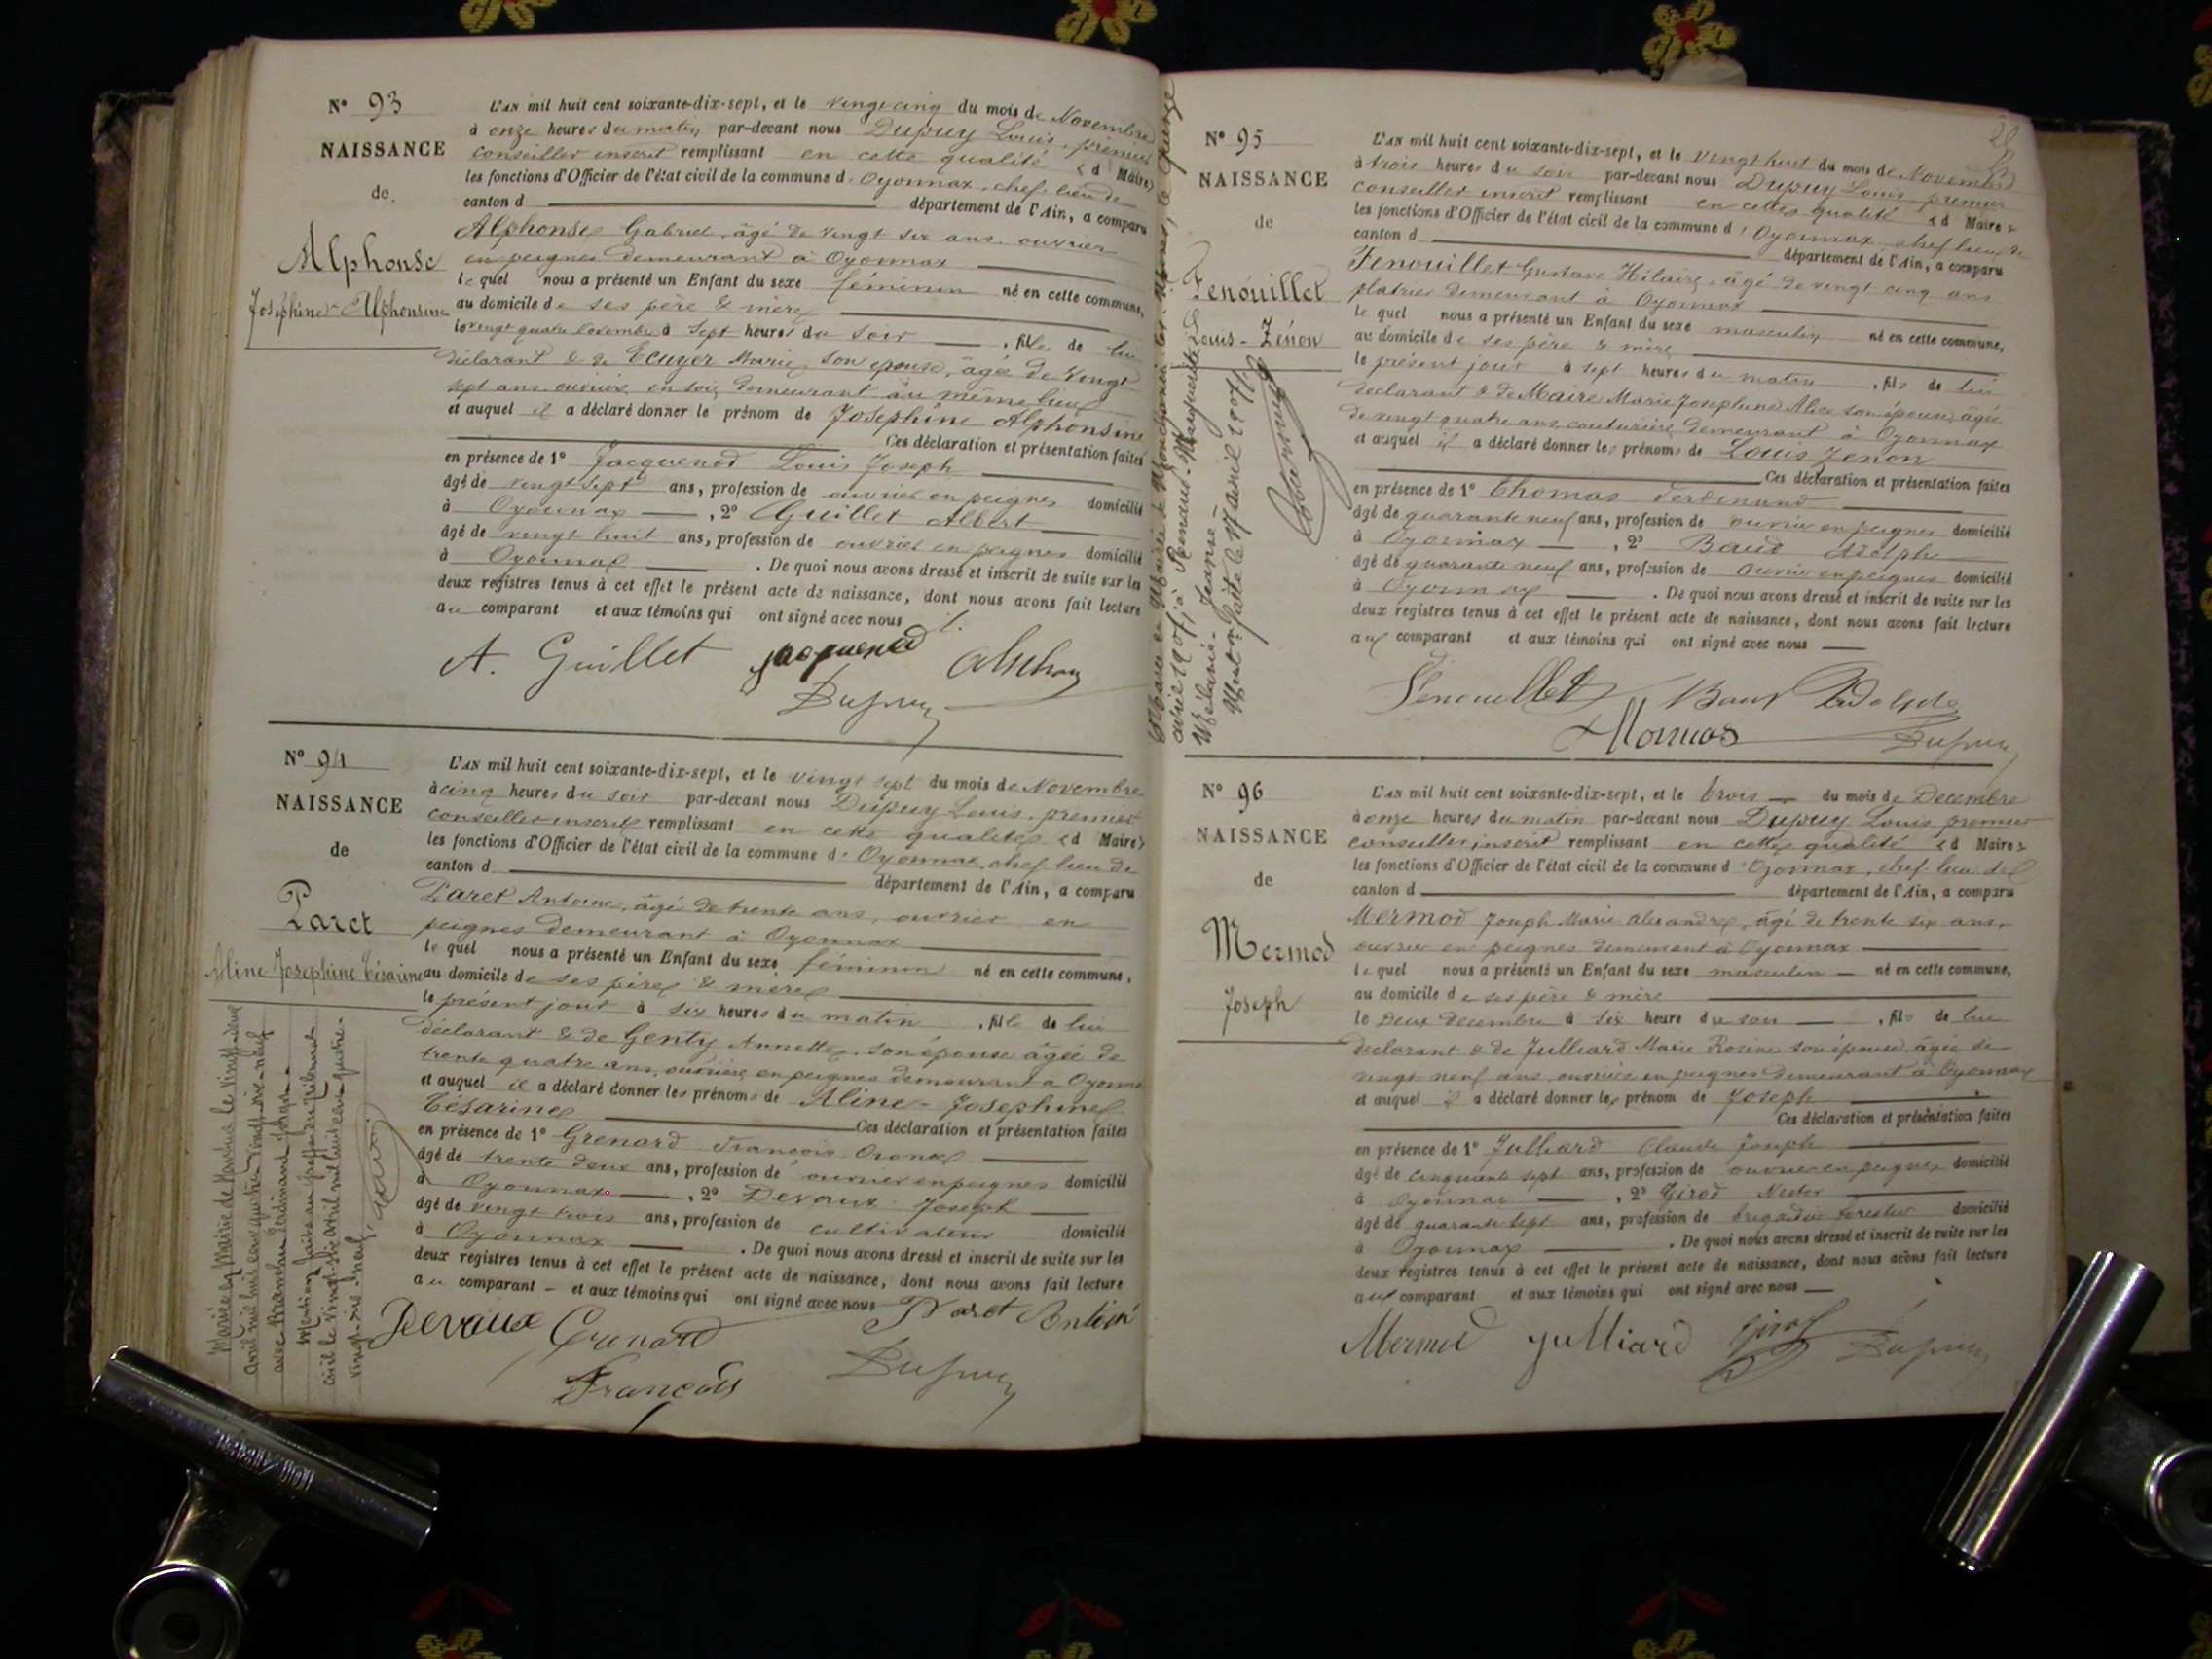 N° 93
NAISSANCE
de
Alphonse
Joséphine-Alphonsine
L'AN mil huit cent soixante-dix-sept, et le vingt cinq du mois de Novembre
à onze heures du matin par-devant nous Dupuy Louis, premier
conseiller inscrit remplissant en cette qualité < d Maire >
les fonctions d'Officier de l'état civil de la commune d' Oyonnax, chef-lieu de
canton d département de l'Ain, a comparu
Alphonse Gabriel, âgé de vingt six ans, ouvrier
en peignes demeurant à Oyonnax
lequel nous a présenté un Enfant du sexe féminin né en cette commune,
au domicile de ses père & mère
le vingt quatre Novembre à sept heures du soir , fille de lui
déclarant & de Ecuyer Marie, son épouse, âgée de vingt
sept ans, ouvrière en soie, demeurant au même lieu
et auquel il a déclaré donner le prénom de Joséphine Alphonsine
Ces déclaration et présentation faites
en présence de 1° Jacquenod Louis Joseph
âgé de vingt sept ans, profession de ouvrier en peignes domicilié
à Oyonnax , 2° Guillet Albert
âgé de vingt huit ans, profession de ouvrier en peignes domicilié
à Oyonnax . De quoi nous avons dressé et inscrit de suite sur les
deux registres tenus à cet effet le présent acte de naissance, dont nous avons fait lecture
au comparant et aux témoins qui ont signé avec nous
A. Guillet Jacquenod
Dupuy
N° 94
NAISSANCE
de
Paret
Aline Josephine Césarine
Mariée en Mairie de le vingt-deux
avril mil huit cent quatre-vingt-dix-neuf
avec
Mention faite au greffe du tribunal
civil le vingt-six avril mil huit cent quatre-
vingt-dix-neuf.
L'AN mil huit cent soixante-dix-sept, et le vingt sept du mois de Novembre
à cinq heures du soir par-devant nous Dupuy Louis, premier
conseiller inscrit remplissant en cette qualité < d Maire >
les fonctions d'Officier de l'état civil de la commune d' Oyonnax, chef-lieu de
canton d département de l'Ain, a comparu
Paret Antoine, âgé de trente ans, ouvrier en
peignes demeurant à Oyonnax
lequel nous a présenté un Enfant du sexe féminin né en cette commune,
au domicile de ses père & mère
le présent jour à six heures du matin , fille de lui
déclarant & de Genty Annette, son épouse âgée de
trente quatre ans, ouvrière en peignes demeurant à Oyonnax
et auquel il a déclaré donner les prénoms de Aline-Josephine
Césarine
Ces déclaration et présentation faites
en présence de 1° Grenard François
âgé de trente deux ans, profession de ouvrier en peignes domicilié
à Oyonnax , 2° Devaux Joseph
âgé de vingt trois ans, profession de cultivateur domicilié
à Oyonnax . De quoi nous avons dressé et inscrit de suite sur les
deux registres tenus à cet effet le présent acte de naissance, dont nous avons fait lecture
au comparant et aux témoins qui ont signé avec nous
Devaux Grenard Paret Antoine
François Dupuy
20
N° 95
NAISSANCE
de
Fenouillet
Louis-Zénon
avril 1905, à Renaud-Marguerite
Jeanne
Ment. faite le 17 avril 1905
L'AN mil huit cent soixante-dix-sept, et le vingt huit du mois de Novembre
à trois heures du soir par-devant nous Dupuy Louis premier
conseiller inscrit remplissant en cette qualité < d Maire >
les fonctions d'Officier de l'état civil de la commune d' Oyonnax chef lieu de
canton d département de l'Ain, a comparu
Fenouillet Gustave Hilaire, âgé de vingt cinq ans
platrier demeurant à Oyonnax
lequel nous a présenté un Enfant du sexe masculin né en cette commune,
au domicile de ses père & mère
le présent jour à sept heures du matin , fils de lui
déclarant & de Maire Marie Josephine Alice son épouse, âgée
de vingt quatre ans, couturière demeurant à Oyonnax
et auquel il a déclaré donner les prénoms de Louis Zenon
Ces déclaration et présentation faites
en présence de 1° Thomas Ferdinand
âgé de quarante neuf ans, profession de ouvrier en peignes domicilié
à Oyonnax , 2° Baud Adolphe
âgé de quarante neuf ans, profession de ouvrier en peignes domicilié
à Oyonnax . De quoi nous avons dressé et inscrit de suite sur les
deux registres tenus à cet effet le présent acte de naissance, dont nous avons fait lecture
au comparant et aux témoins qui ont signé avec nous
Fenouillet Baud Adolphe
Thomas Dupuy
N° 96
NAISSANCE
de
Mermod
Joseph
L'AN mil huit cent soixante-dix-sept, et le trois du mois de Decembre
à onze heures du matin par-devant nous Dupuy Louis premier
conseiller inscrit remplissant en cette qualité < d Maire >
les fonctions d'Officier de l'état civil de la commune d' Oyonnax, chef-lieu de
canton d département de l'Ain, a comparu
Mermod Joseph Marie Alexandre, âgé de trente six ans,
ouvrier en peignes demeurant à Oyonnax
lequel nous a présenté un Enfant du sexe masculin né en cette commune,
au domicile de ses père & mère
le deux decembre à six heure du soir , fils de lui
déclarant & de Julliard Marie Rosine son épouse, âgée de
vingt neuf ans, ouvrière en peignes demeurant à Oyonnax
et auquel il a déclaré donner le prénom de Joseph
Ces déclaration et présentation faites
en présence de 1° Julliard Claude Joseph
âgé de cinquante sept ans, profession de ouvrier en peignes domicilié
à Oyonnax , 2° Girod Nestor
âgé de quarante sept ans, profession de brigadier forestier domicilié
à Oyonnax . De quoi nous avons dressé et inscrit de suite sur les
deux registres tenus à cet effet le présent acte de naissance, dont nous avons fait lecture
au comparant et aux témoins qui ont signé avec nous
Mermod Julliard Girod Dupuy